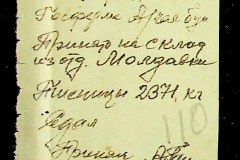 Госферма
Принято на склад
из отд. Молдавки
Пшеницы 2371 кг
Сдал
110
Принял